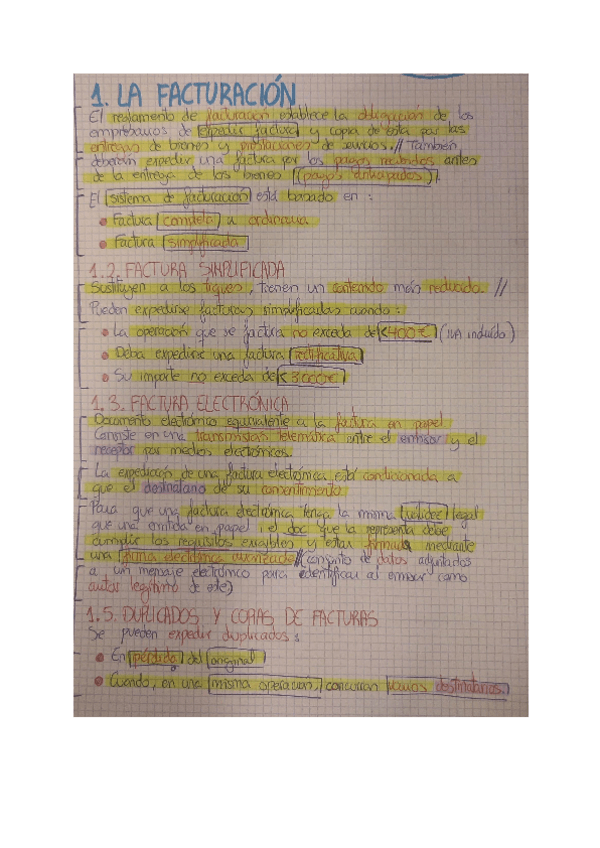 1. LA FACTURACIÓN
El reglamento de facturación establece la obligación de los
empresarios de expedir factura y copia de esta por las
entregas de bienes y prestaciones de servicios. // También
deberán expedir una factura por los pagos recibidos antes
de la entrega de los bienes (pagos anticipados).
El sistema de facturación está basado en :
• Factura completa u ordinaria
• Factura simplificada
1.2. FACTURA SIMPLIFICADA
Sustituyen a los tiques, tienen un contenido más reducido. //
Pueden expedirse facturas simplificadas cuando :
• La operación que se factura no exceda de < 400 € (IVA incluido)
• Deba expedirse una factura rectificativa
• Su importe no exceda de < 3000 €
1.3. FACTURA ELECTRÓNICA
Documento electrónico equivalente a la factura en papel
Consiste en una transmisión telemática entre el emisor y el
receptor por medios electrónicos.
La expedición de una factura electrónica está condicionada a
que el destinatario de su consentimiento
Para que una factura electrónica tenga la misma validez legal
que una emitida en papel : el doc que la representa debe
cumplir los requisitos exigibles y estar firmada mediante
una firma electrónica avanzada // (conjunto de datos adjuntados
a un mensaje electrónico para identificar al emisor como
autor legítimo de este)
1.5. DUPLICADOS Y COPIAS DE FACTURAS
Se pueden expedir duplicados :
• En pérdida del original
• Cuando, en una misma operación, concurran varios destinatarios.